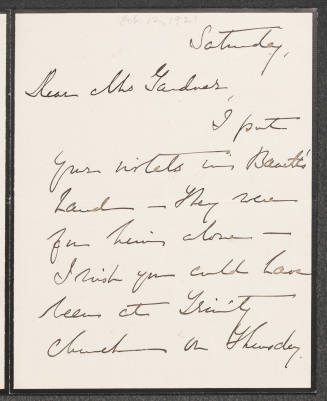 Feb. 12, 1921
Saturday,
Dear Mrs Gardner,
I put
your violets in Barrett's
hand — They were
for him alone —
I wish you could have
been at Trinity
church on Thursday.